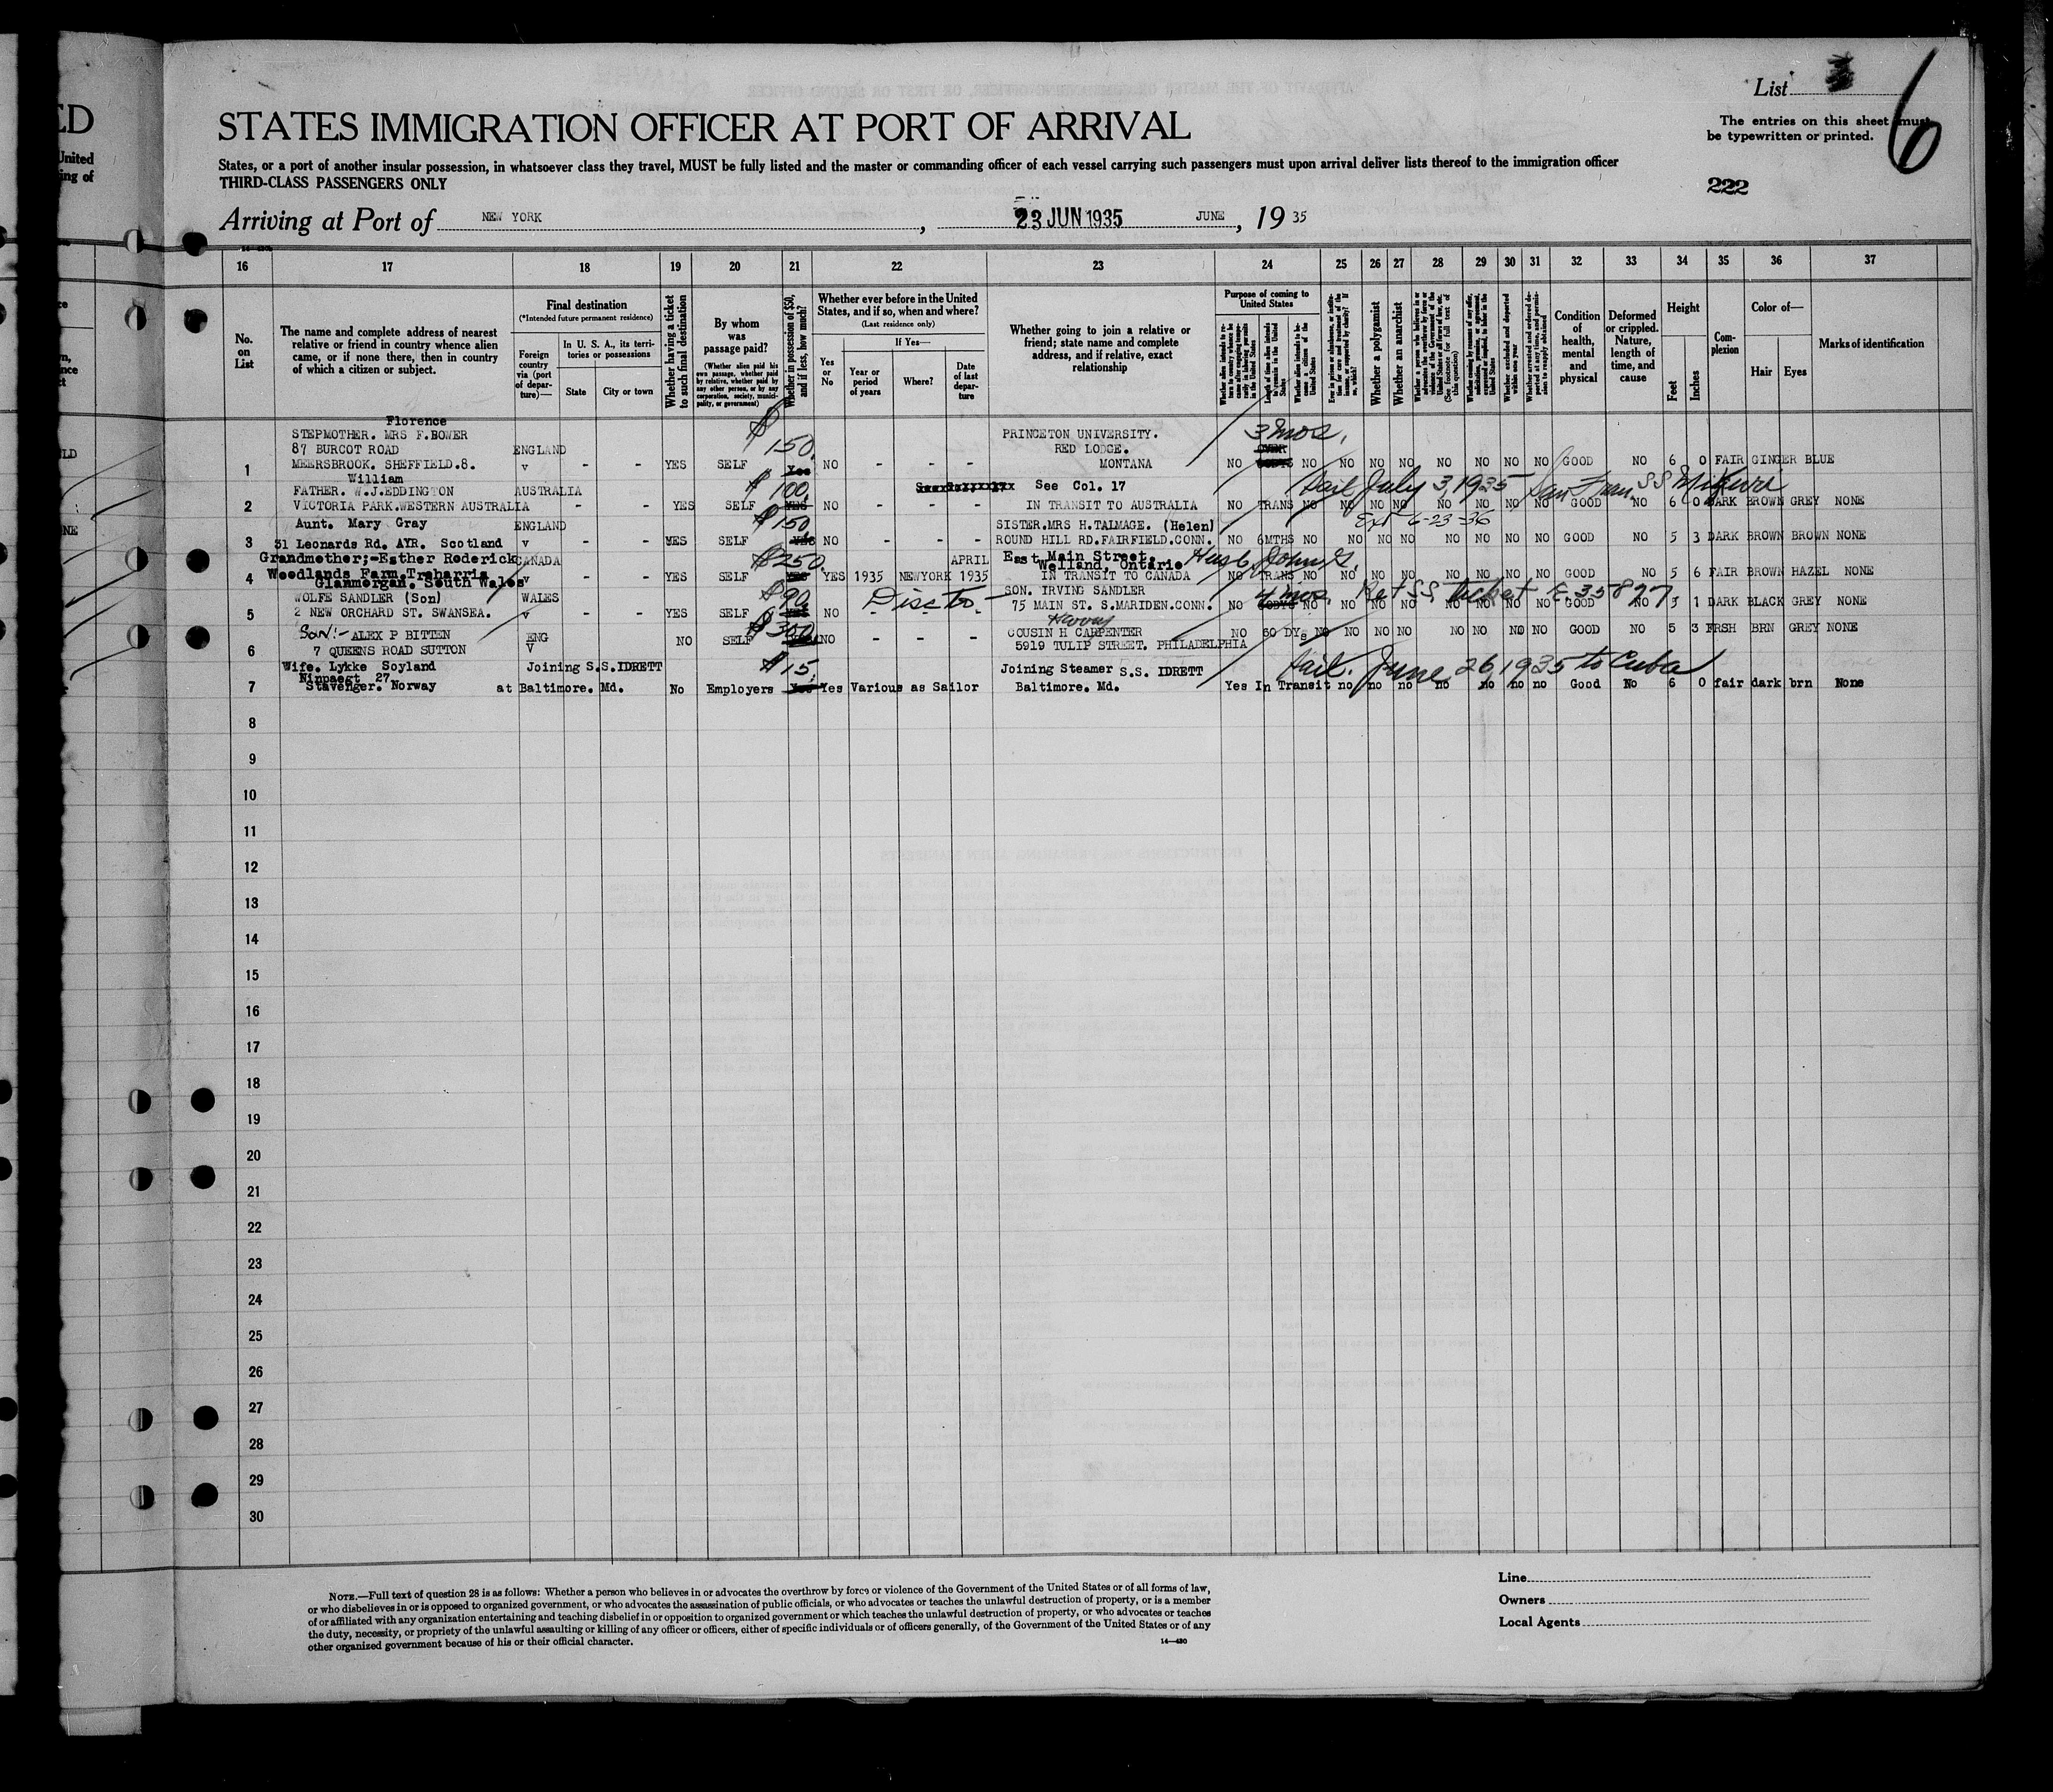 ED
United
ing of
List
6
STATES IMMIGRATION OFFICER AT PORT OF ARRIVAL
The entries on this sheet must
be typewritten or printed.
States, or a port of another insular possession, in whatsoever class they travel, MUST be fully listed and the master or commanding officer of each vessel carrying such passengers must upon arrival deliver lists thereof to the immigration officer
THIRD-CLASS PASSENGERS ONLY
222
Arriving at Port of NEW YORK, 23 JUN 1935 JUNE, 19 35
16 17 18 19 20 21 22 23 24 25 26 27 28 29 30 31 32 33 34 35 36 37
No. on List
The name and complete address of nearest relative or friend in country whence alien came, or if none there, then in country of which a citizen or subject.
Final destination
(*Intended future permanent residence)
Foreign country via (port of departure)—
In U. S. A., its territories or possessions
State
City or town
Whether having a ticket to such final destination
By whom was passage paid?
(Whether alien paid his own passage, whether paid by relative, whether paid by any other person, or by any corporation, society, municipality, or government)
Whether in possession of $50, and if less, how much?
Whether ever before in the United States, and if so, when and where?
(Last residence only)
Yes or No
If Yes—
Year or period of years
Where?
Date of last departure
Whether going to join a relative or friend; state name and complete address, and if relative, exact relationship
Purpose of coming to United States
Length of time alien intends to remain in the United States
Whether alien intends to become a citizen of the United States
Whether a polygamist
Whether an anarchist
(See footnote for full text of this question)
Whether excluded and deported within one year
Condition of health, mental and physical
Deformed or crippled. Nature, length of time, and cause
Height
Feet
Inches
Complexion
Color of—
Hair
Eyes
Marks of identification
Florence
STEPMOTHER. MRS F.BOWER $ PRINCETON UNIVERSITY. 3 mos.
87 BURCOT ROAD ENGLAND 150. RED LODGE.
1 MEERSBROOK. SHEFFIELD.8. v - - YES SELF Yes NO - - - MONTANA NO NO NO NO NO NO NO NO NO GOOD NO 6 0 FAIR GINGER BLUE
William
FATHER. W.J.EDDINGTON AUSTRALIA $100. See Col. 17 Sail July 3, 1935 San Fran SS
2 VICTORIA PARK.WESTERN AUSTRALIA - - YES SELF YES NO - - - IN TRANSIT TO AUSTRALIA NO TRANS NO NO NO NO NO NO NO NO GOOD NO 6 0 DARK BROWN GREY NONE
Aunt. Mary Gray ENGLAND $150 SISTER.MRS H.TALMAGE. (Helen) Ext 6-23-36
3 31 Leonards Rd. AYR. Scotland v - - YES SELF YES NO - - - ROUND HILL RD.FAIRFIELD.CONN. NO 6MTHS NO NO NO NO NO NO NO NO GOOD NO 5 3 DARK BROWN BROWN NONE
Grandmother;-Esther Roderick CANADA $250. APRIL East Main Street. Husb. John G.
Welland, Ontario
4 Woodlands Farm.Treharris v - - YES SELF YES YES 1935 NEWYORK 1935 IN TRANSIT TO CANADA NO TRANS NO NO NO NO NO NO NO NO GOOD NO 5 6 FAIR BROWN HAZEL NONE
Glammorgan. South Wales
WOLFE SANDLER (Son) WALES $90. Diss to. - SON. IRVING SANDLER 4 mos. Ret SS ticket E 35877
5 2 NEW ORCHARD ST. SWANSEA. v - - YES SELF YES NO - - - 75 MAIN ST. S.MARIDEN.CONN. NO NO NO NO NO NO NO NO NO GOOD NO 5 1 DARK BLACK GREY NONE
Harry
Son:- ALEX P BITTEN ENG $300 COUSIN H CARPENTER
6 7 QUEENS ROAD SUTTON V NO SELF NO - - - 5919 TULIP STREET. PHILADELPHIA NO 60 DYs NO NO NO NO NO NO NO NO GOOD NO 5 3 FRSH BRN GREY NONE
Wife. Lykke Soyland Joining S.S.IDRETT $15. Joining Steamer S.S. IDRETT Sail. June 26, 1935 to Cuba
Ninpaegt 27
7 Stavenger. Norway at Baltimore. Md. No Employers Yes Yes Various as Sailor Baltimore. Md. Yes In Transit no no no no no no no Good No 6 0 fair dark brn None
8
9
10
11
12
13
14
15
16
17
18
19
20
21
22
23
24
25
26
27
28
29
30
NOTE.—Full text of question 28 is as follows: Whether a person who believes in or advocates the overthrow by force or violence of the Government of the United States or of all forms of law,
or who disbelieves in or is opposed to organized government, or who advocates the assassination of public officials, or who advocates or teaches the unlawful destruction of property, or is a member
of or affiliated with any organization entertaining and teaching disbelief in or opposition to organized government or which teaches the unlawful destruction of property, or who advocates or teaches
the duty, necessity, or propriety of the unlawful assaulting or killing of any officer or officers, either of specific individuals or of officers generally, of the Government of the United States or of any
other organized government because of his or their official character.
14—430
Line
Owners
Local Agents